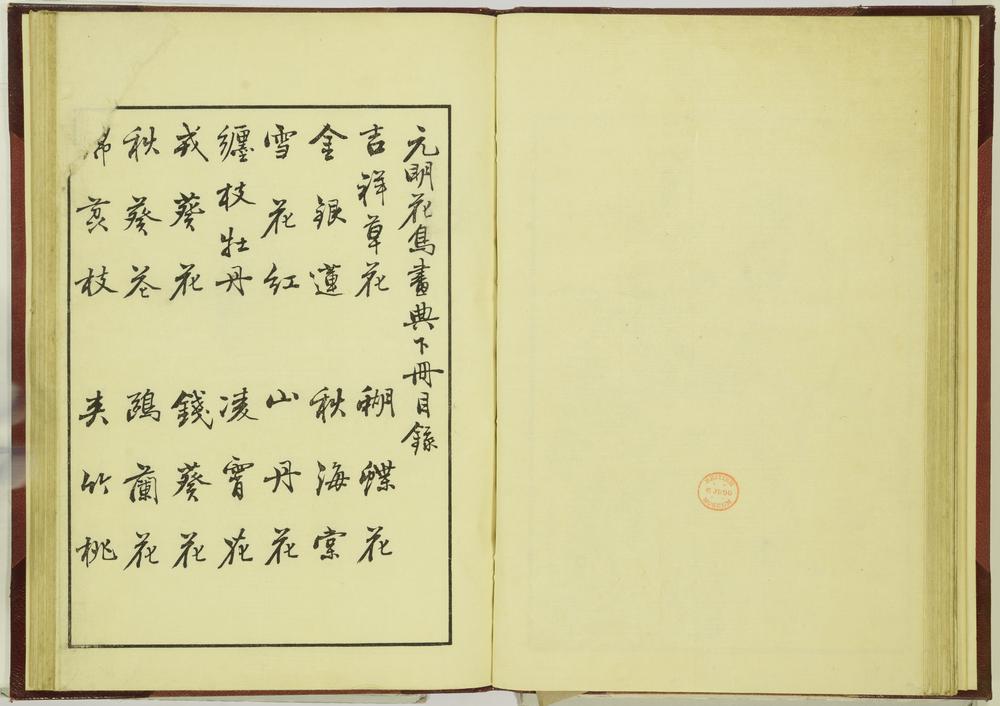 元明花鳥畫典下冊目錄
吉祥草花 蝴蝶花
金銀蓮 秋海棠
雪花紅 山丹花
纏枝牡丹 凌霄花
戎葵花 錢葵花
秋葵花 甌蘭花
錦荔枝 夾竹桃
BRITISH
MUSEUM